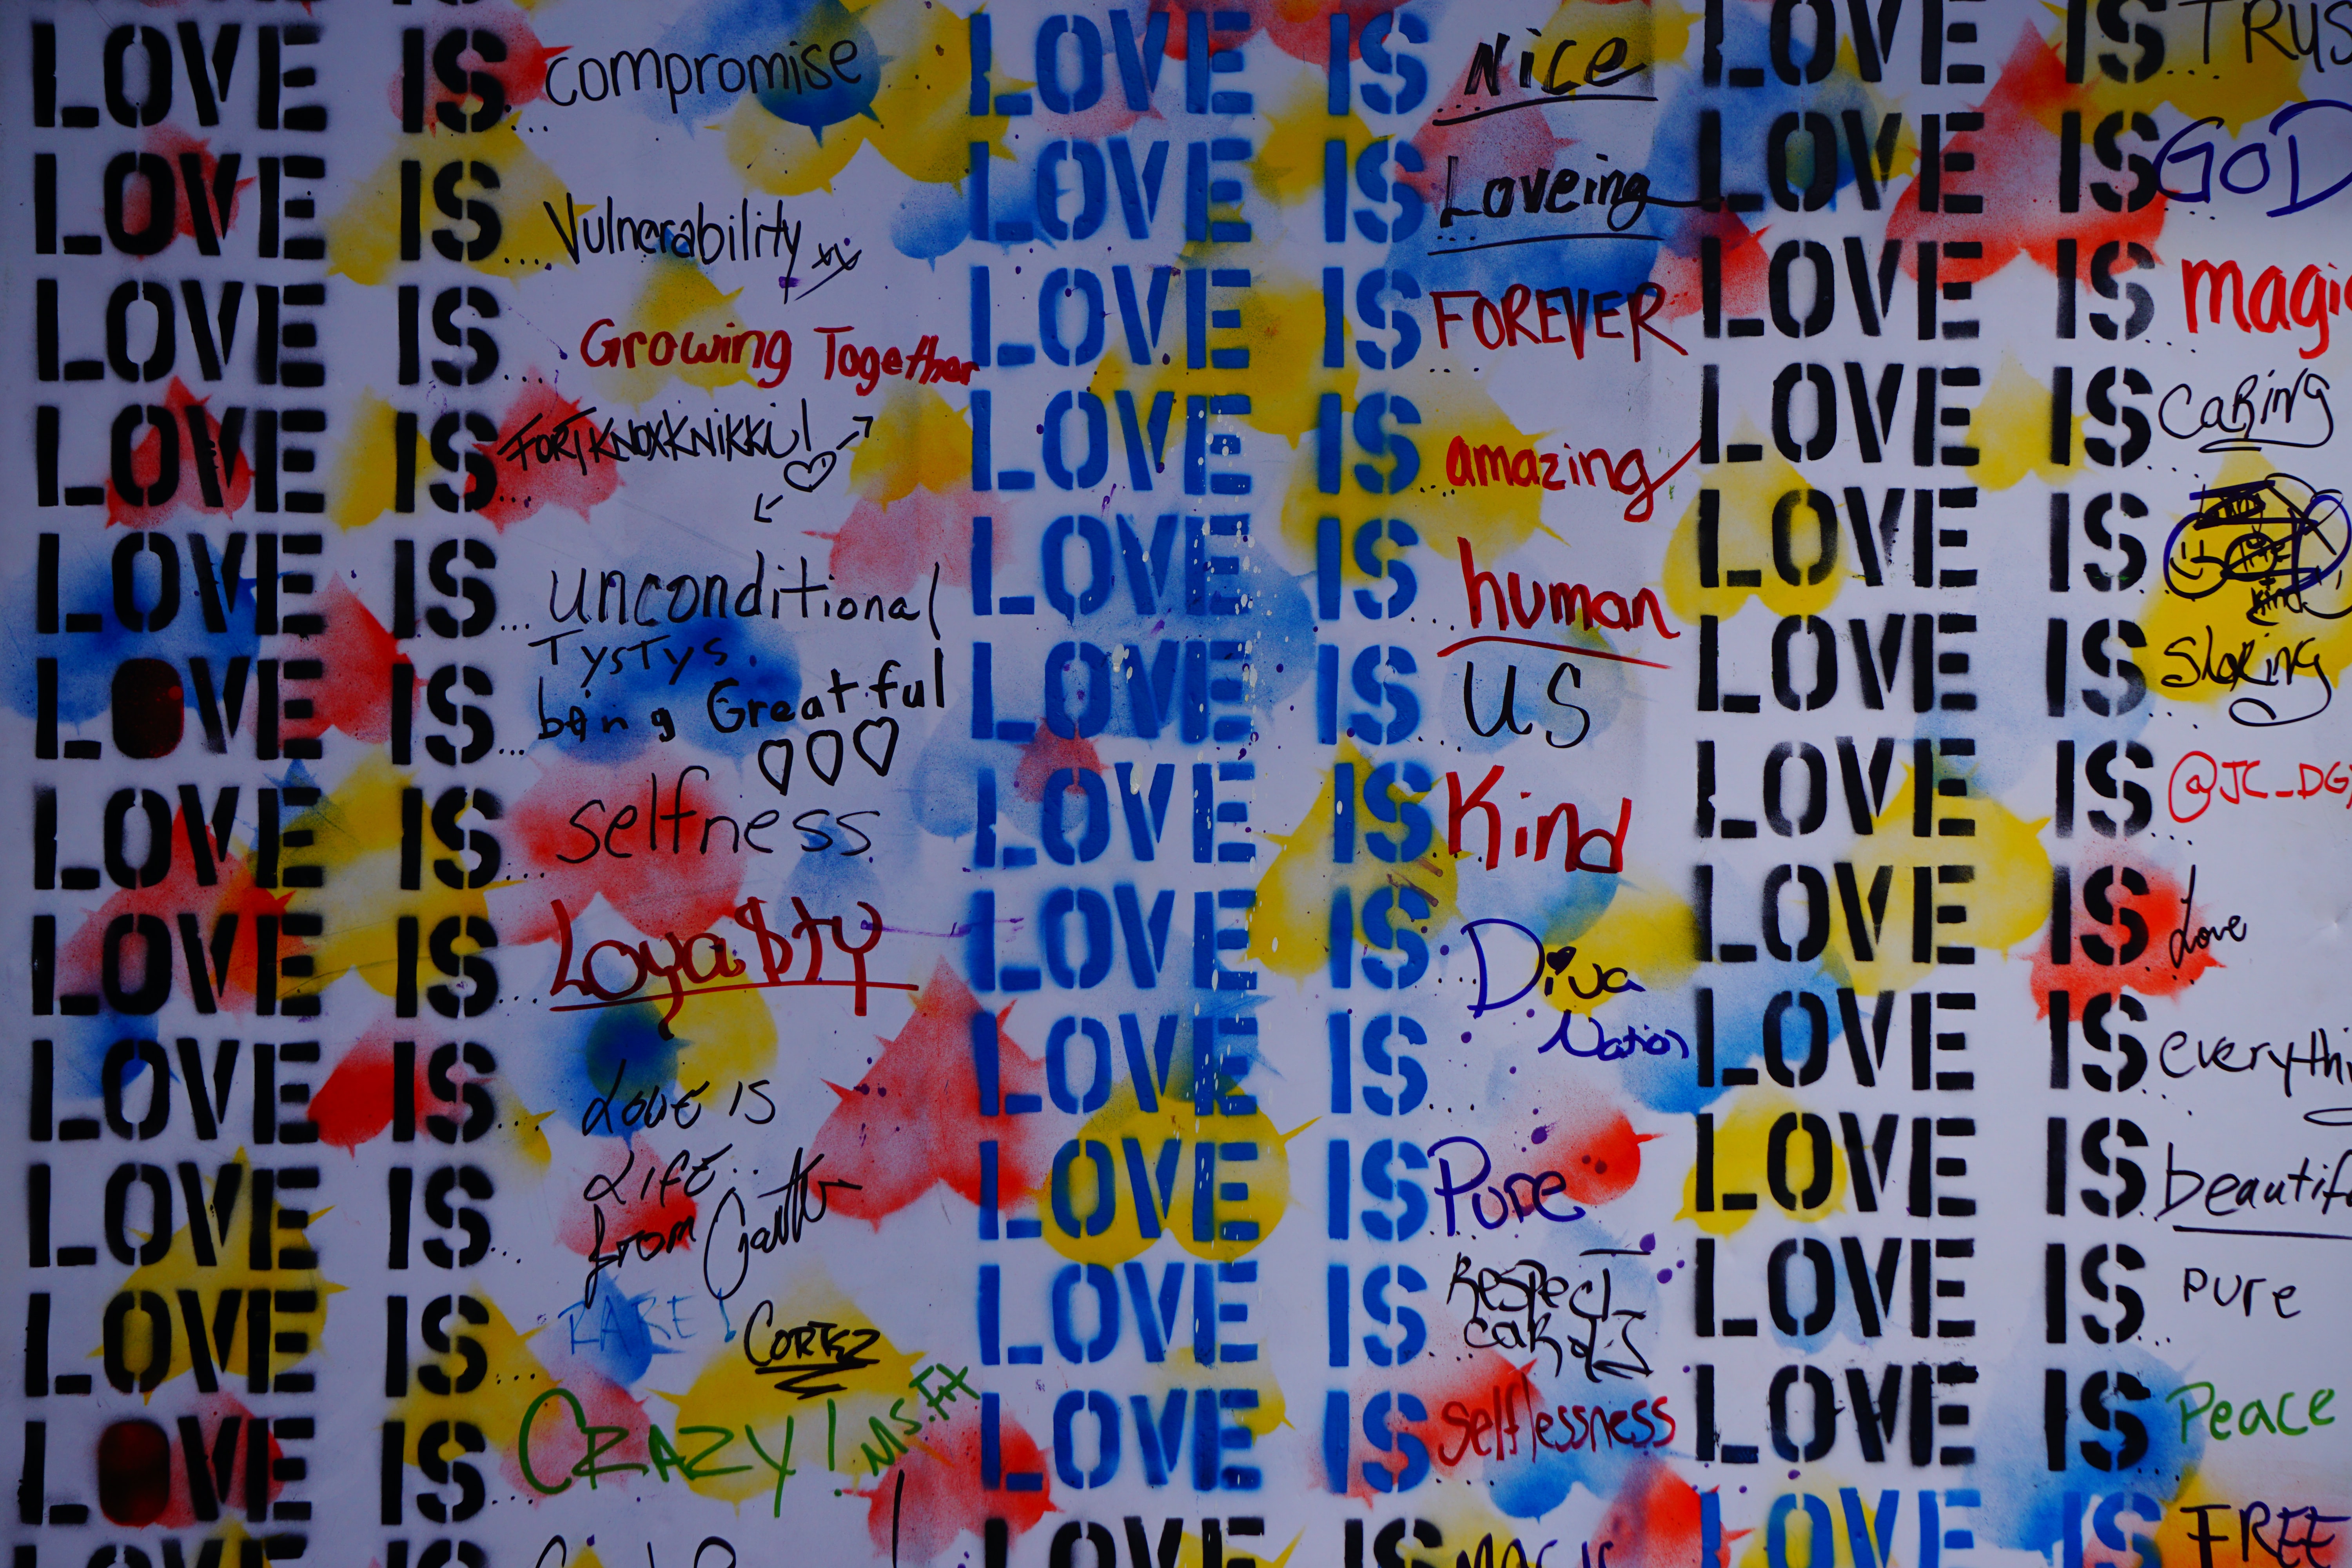 LOVE IS... compromise
LOVE IS.... Vulnerability
LOVE IS... Growing Together
LOVE IS... FORTKNOXKNIKKI!
LOVE IS... unconditional
TysTys.
LOVE IS... being Greatful
LOVE IS... selfness
LOVE IS... Loya$ty
LOVE IS... Love is
LOVE IS... LIFE..
from
LOVE IS... RARE! CORTEZ
LOVE IS... CRAZY! MS.Fit
LOVE IS... Nice
LOVE IS... Loveing
LOVE IS... FOREVER
LOVE IS... amazing
LOVE IS... human
LOVE IS... US
LOVE IS... Kind
LOVE IS... Diva
Nation
LOVE IS...
LOVE IS... Pure
LOVE IS... RESPECT
LOVE IS... selflessness
LOVE IS
LOVE IS... TRUS
LOVE IS... GOD
LOVE IS... magic
LOVE IS... CaRing
LOVE IS... kind
LOVE IS... Sharing
LOVE IS... @JC_DG
LOVE IS... Love
LOVE IS... everythi
LOVE IS... beautif
LOVE IS... pure
LOVE IS... Peace
LOVE IS FREE